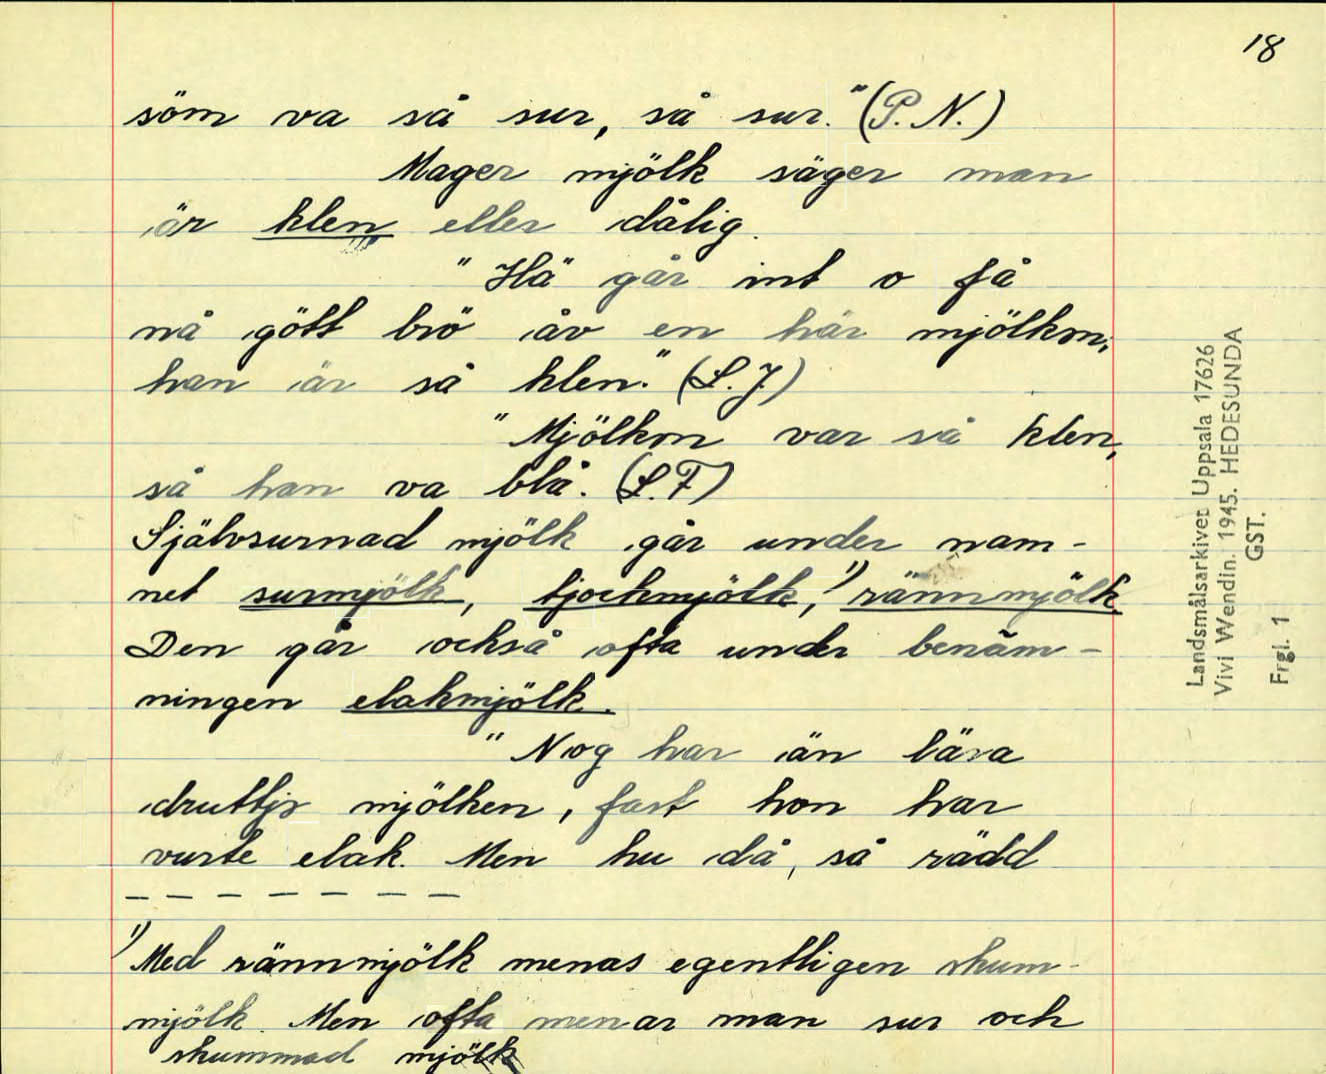 18
söm va så sur, så sur." (P. N.)
Mager mjölk säger man
är klen eller dålig.
"Hä går int o få
nå gött brö åv en här mjölkm,
han är så klen." (L. J.)
"Mjölkm var så klen,
så han va blå. (L. F)
Självsurnad mjölk går under nam-
net surmjölk, tjockmjölk, 1) rännmjölk.
Den går också ofta under benäm-
ningen elakmjölk.
"Nog har än
mjölken, fast hon har
vurte elak. Men hu då, så rädd
1) Med rännmjölk menas egentligen skum-
mjölk. Men ofta menar man sur och
skummad mjölk
Landsmålsarkivet Uppsala 17626
Vivi Wendin. 1945. HEDESUNDA
GST.
Frgl. 1